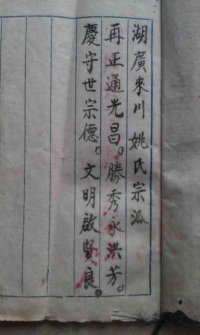 湖廣來川 姚氏宗派
再正通光昌。勝秀永洪芳。
慶守世宗德。文明啟賢良。